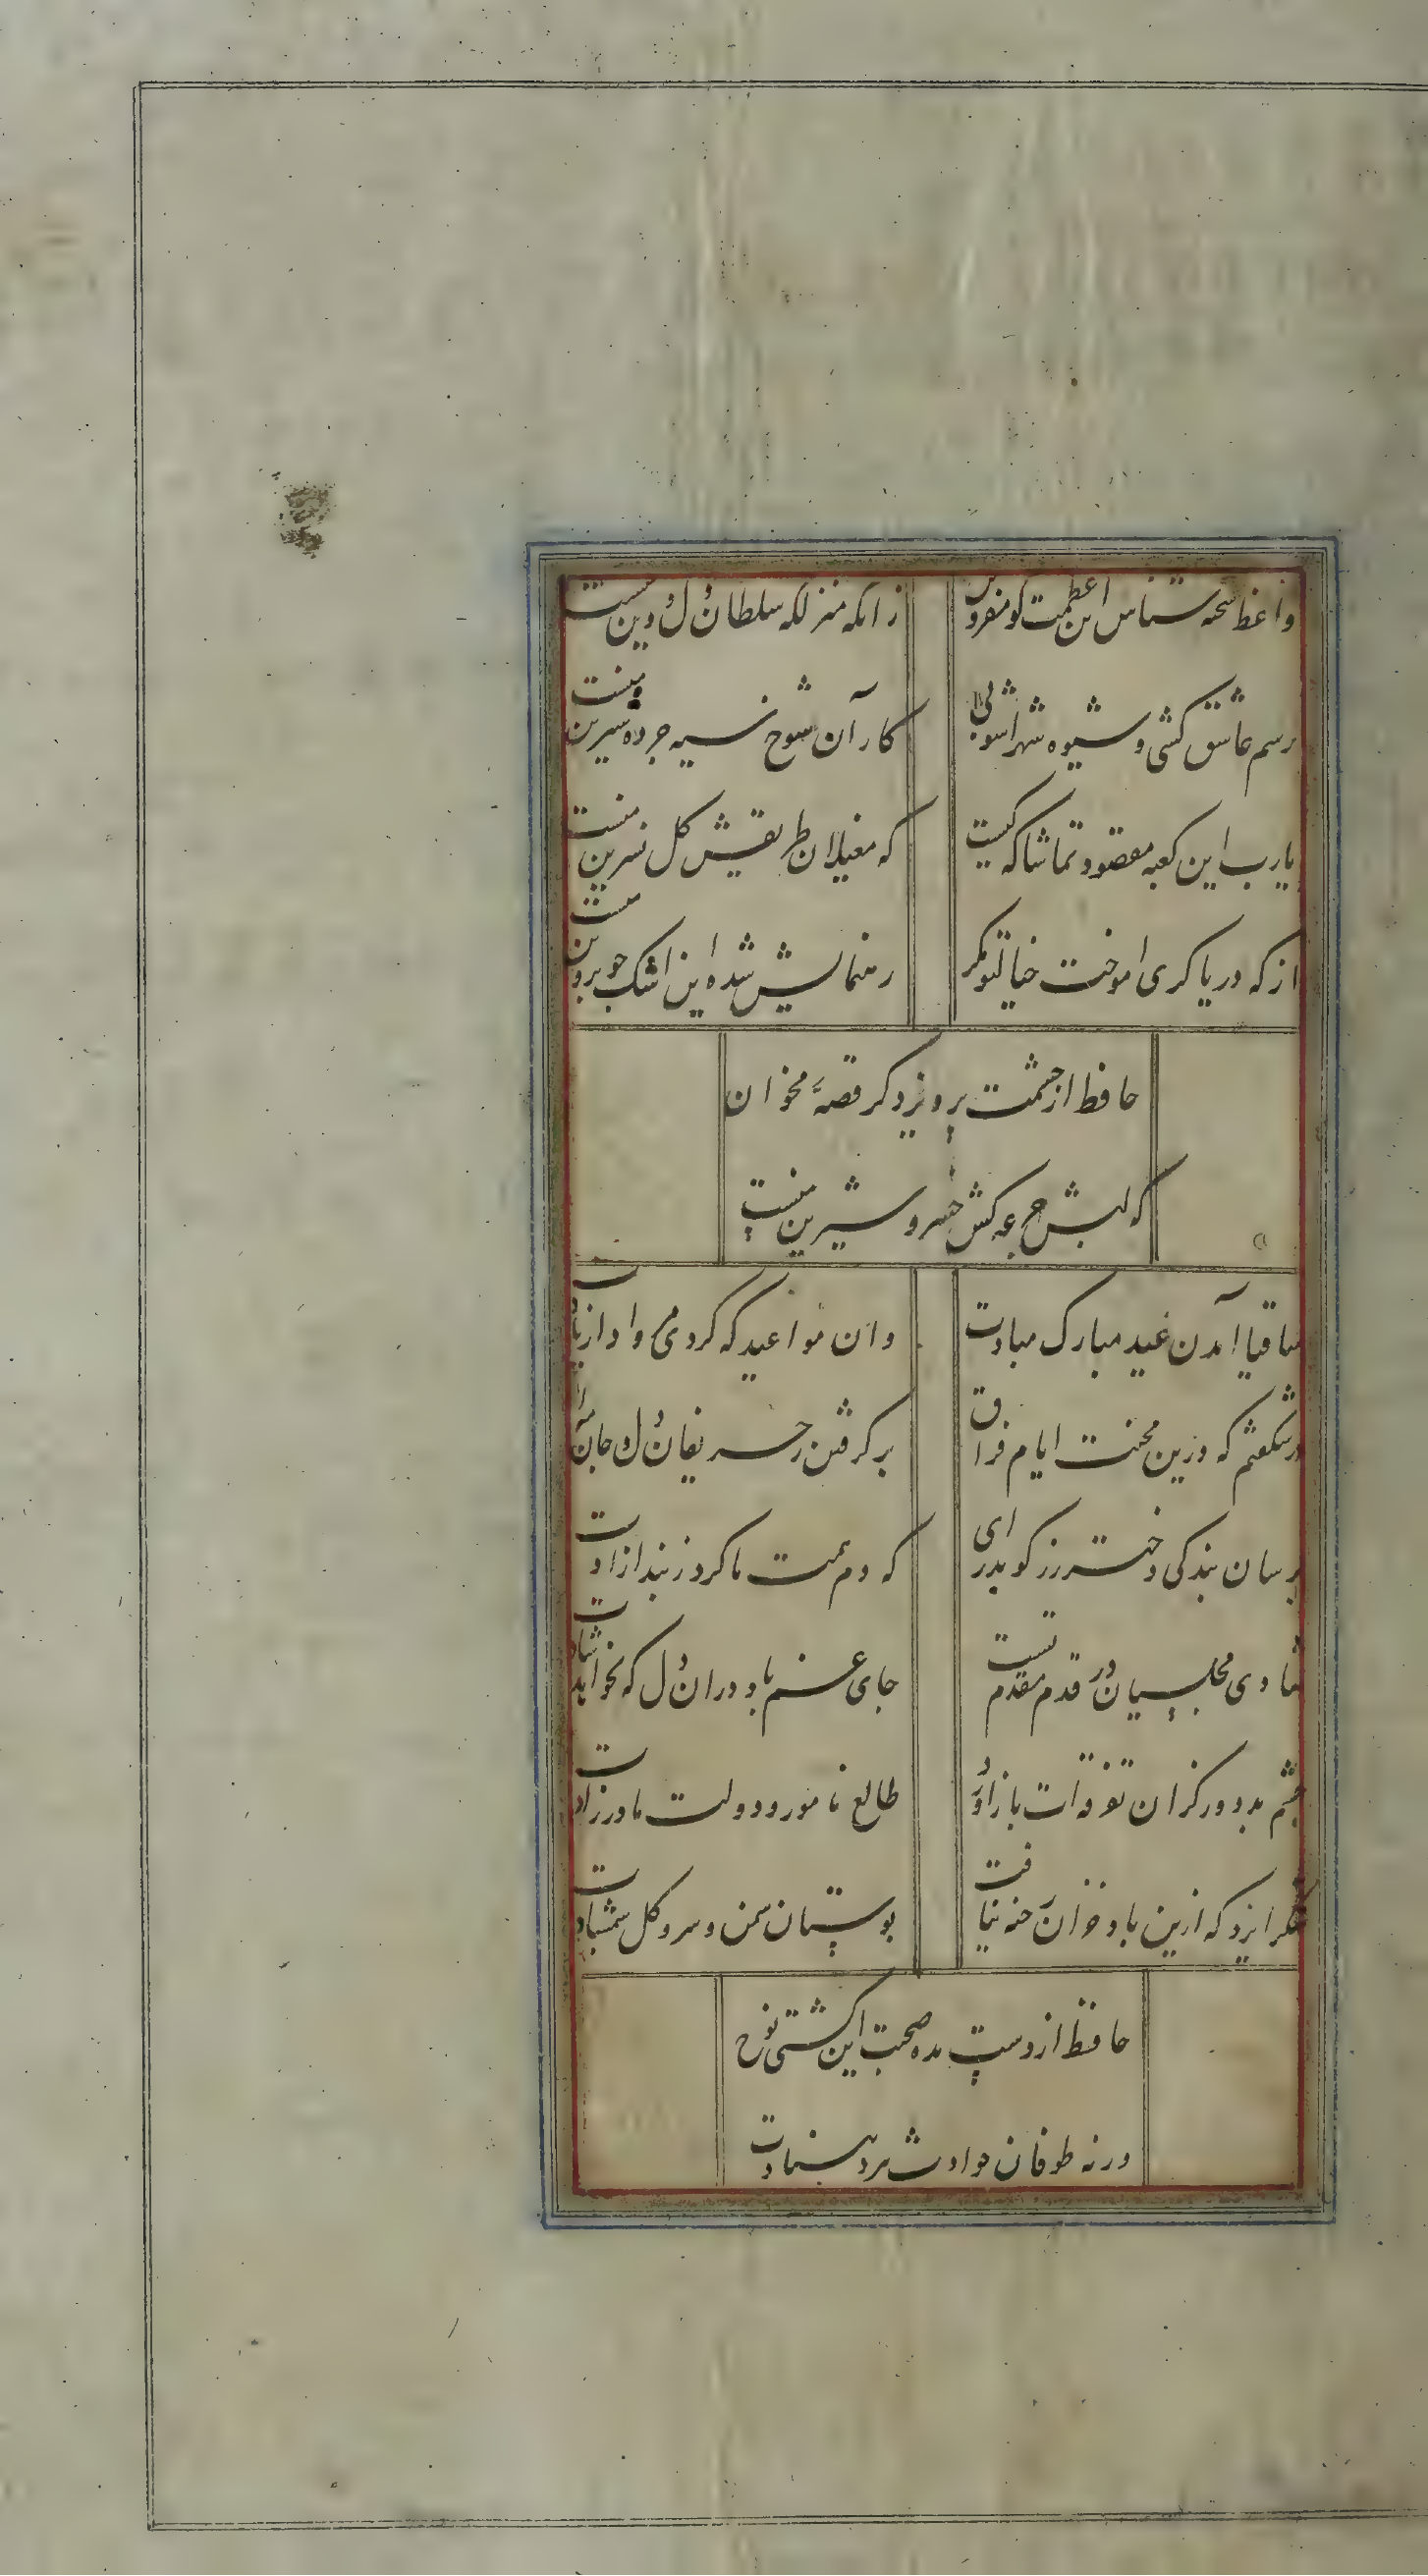 واعظ شحنه شناس این عظمت کو مفروش
زانکه منزلکه سلطان دل و دین منست
رسم عاشق کشی و شیوه شهراشوبی
کار آن شوخ سیه جرده شیرین منست
یارب این کعبه مقصود تماشاکه کیست
که مغیلان طریقش کل نسرین منست
از که دریا کری اموخت خیالتو مکر
رهنمایش شده این اشک جو پروین منست
حافظ از حشمت پرویز دکر قصه مخوان
که لبش جرعه کش خسرو شیرین منست
ساقیا آمدن عید مبارک مبادت
وان مواعید که کردی مرواد از یادت
در شکفتم که درین محنت ایام فراق
بر کرفتن ز حریفان دل و جان
برسان بندکی دختر رز کو بدر ای
که دم همت ما کرد ز بند ازادت
شادی مجلسیان در قدم مقدم تست
جای غم باد دران دل که نخواهد شادت
چشم بد دور کزان تفرقه ات باز آورد
طالع نامور و دولت مادرزادت
شکر ایزد که ازین باد خزان رخنه نیافت
بوستان سمن و سرو و کل شمشادت
حافظ از دست مده صحبت این کشتی نوح
ورنه طوفان حوادث ببرد بنیادت